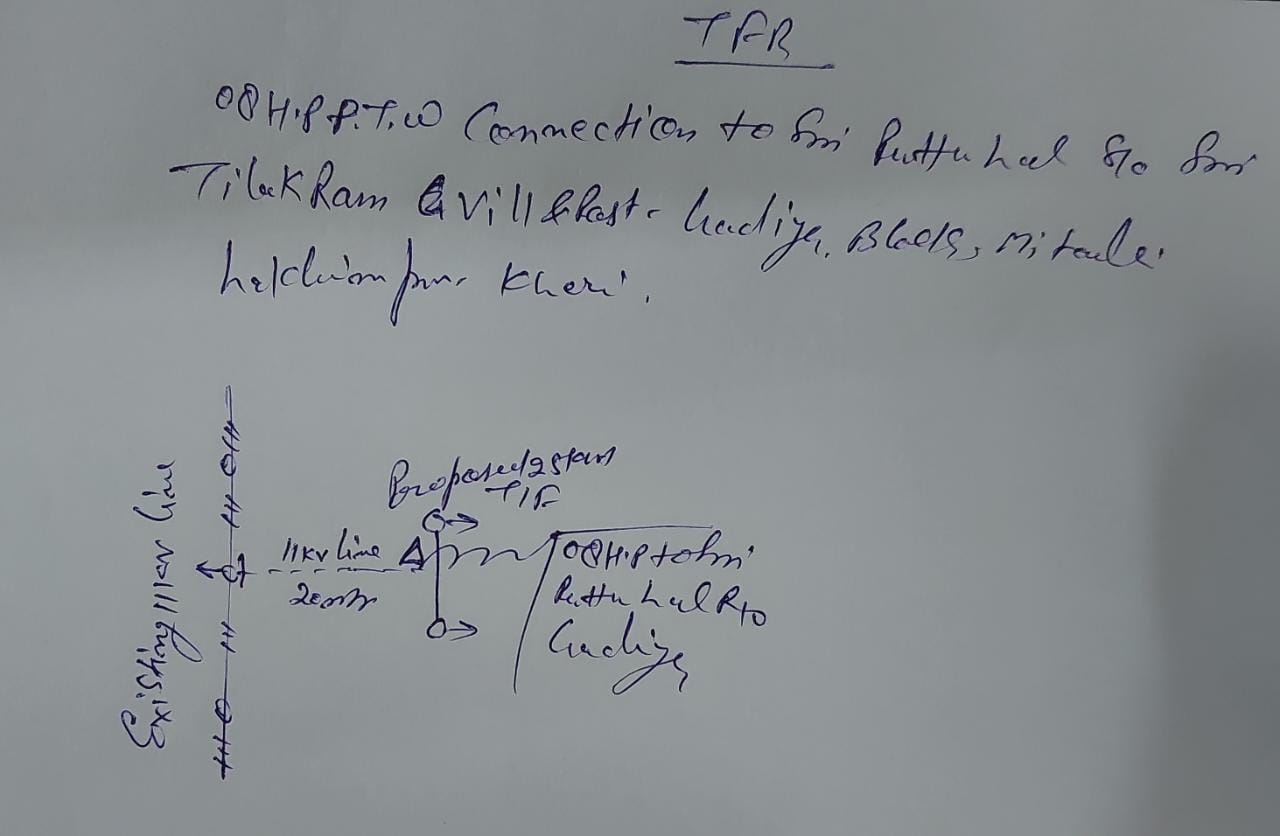 TFR
08 H.P P.T.W Connection to Sri Puttu Lal S/o Sri
Tilak Ram Vill & Post- Gadiya, Block, Mitauli.
Lakhimpur Kheri.
Existing 11kv line
11kv line
20mtr
Proposed 25kva
T/F
08 H.P to Sri
Puttu Lal R/o
Gadiya